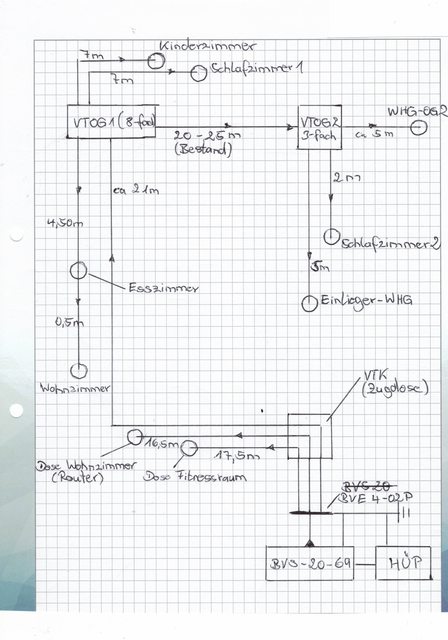 Kinderzimmer
7m
Schlafzimmer 1
7m
WHG-OG2
VTOG1 (8-fach)
VTOG2
3-fach
20-25m
(Bestand)
ca 5m
2m
ca 21m
4,50m
Schlafzimmer 2
5m
Esszimmer
Einlieger-WHG
0,5m
VTK
(Zugdose)
Wohnzimmer
16,5m
17,5m
Dose Wohnzimmer
(Router)
Dose Fitnessraum
BVS-20
BVE 4-02P
BVS-20-69
HÜP